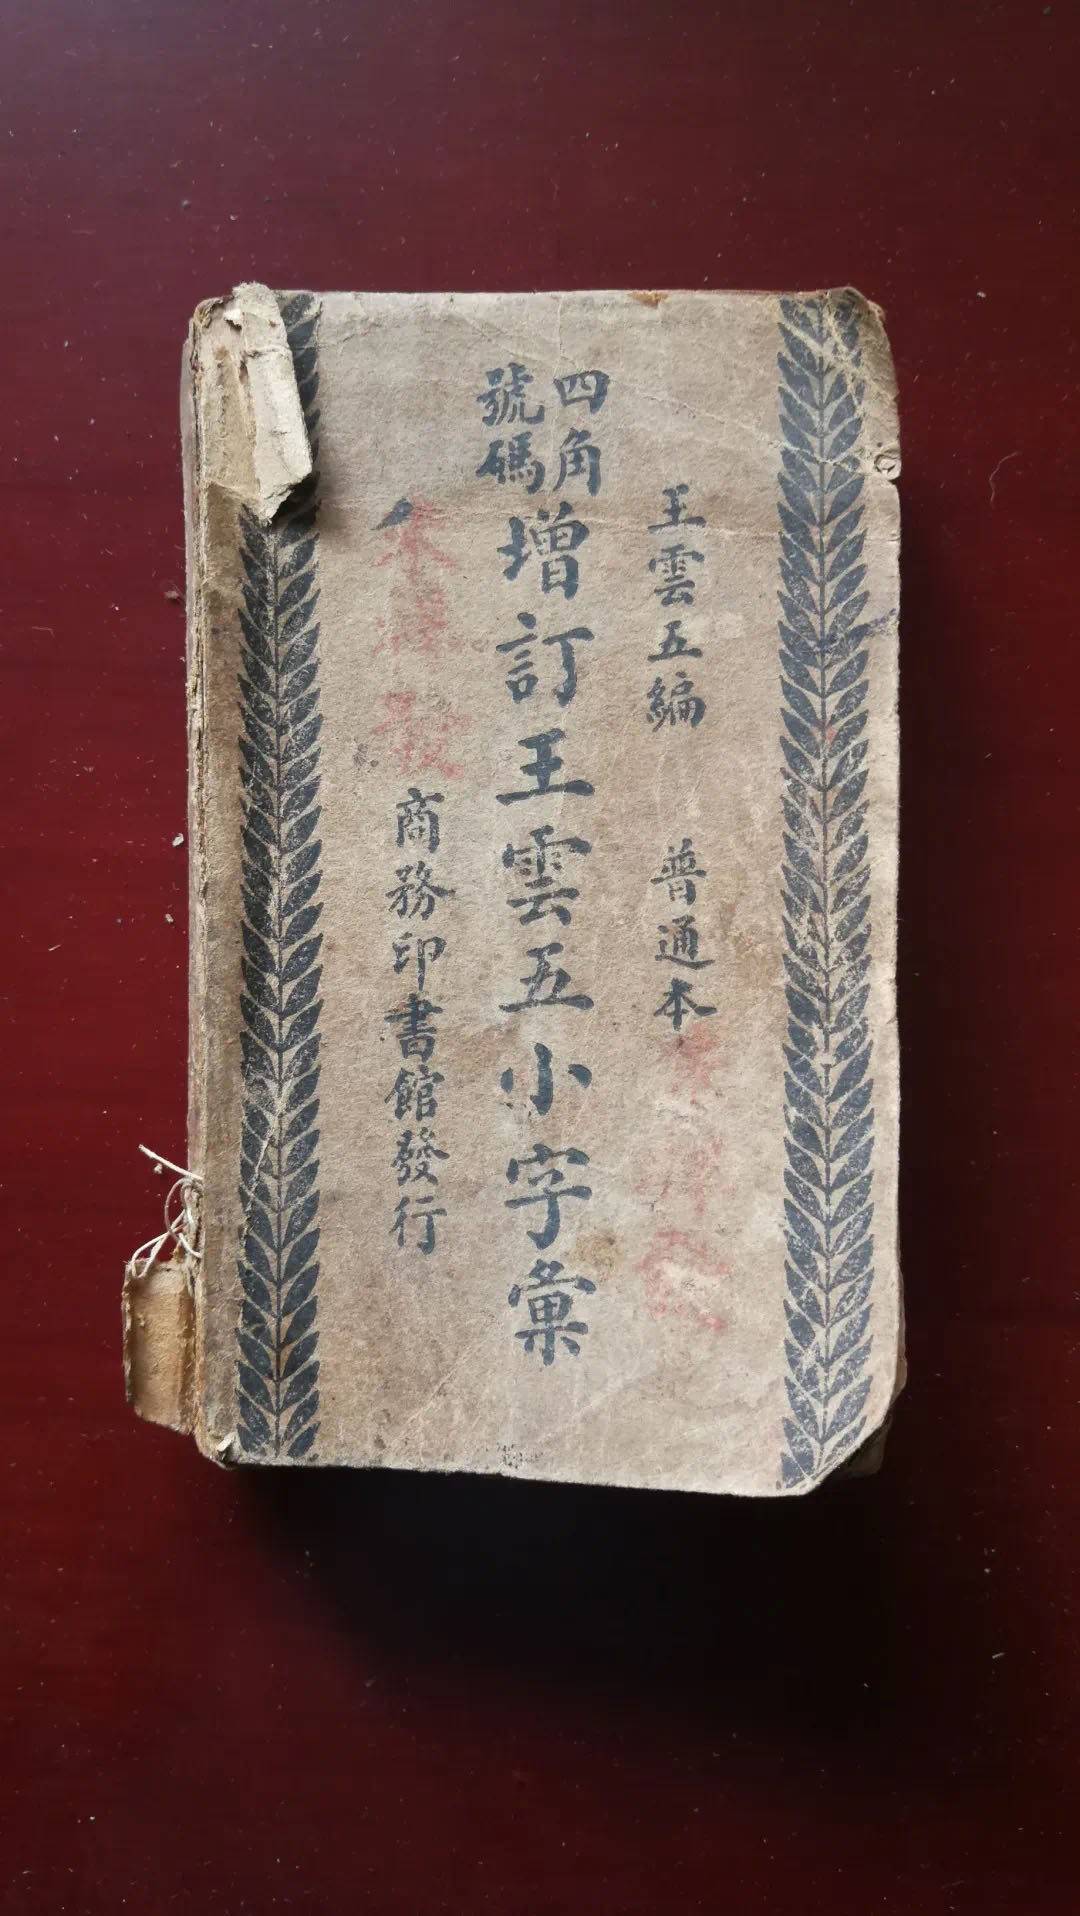 王雲五編 普通本
四角號碼增訂王雲五小字彙
商務印書館發行